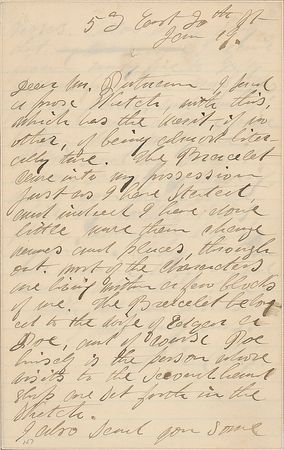 53 East 20th St
Jan 19.
Dear Mr. Putnam—I send
a prose sketch, with this,
which has the merit, if no
other, of being almost liter-
ally true. The Bracelet
came into my possession
just as I have stated
and indeed I have done
little more than change
names and places, through
out. Most of the characters
are living within a few blocks
of me. The Bracelet belong-
ed to the wife of Edgar A
Poe, and of course Poe
himself is the person whose
visits to the second hand
shop are set forth in the
sketch.
I also send you some